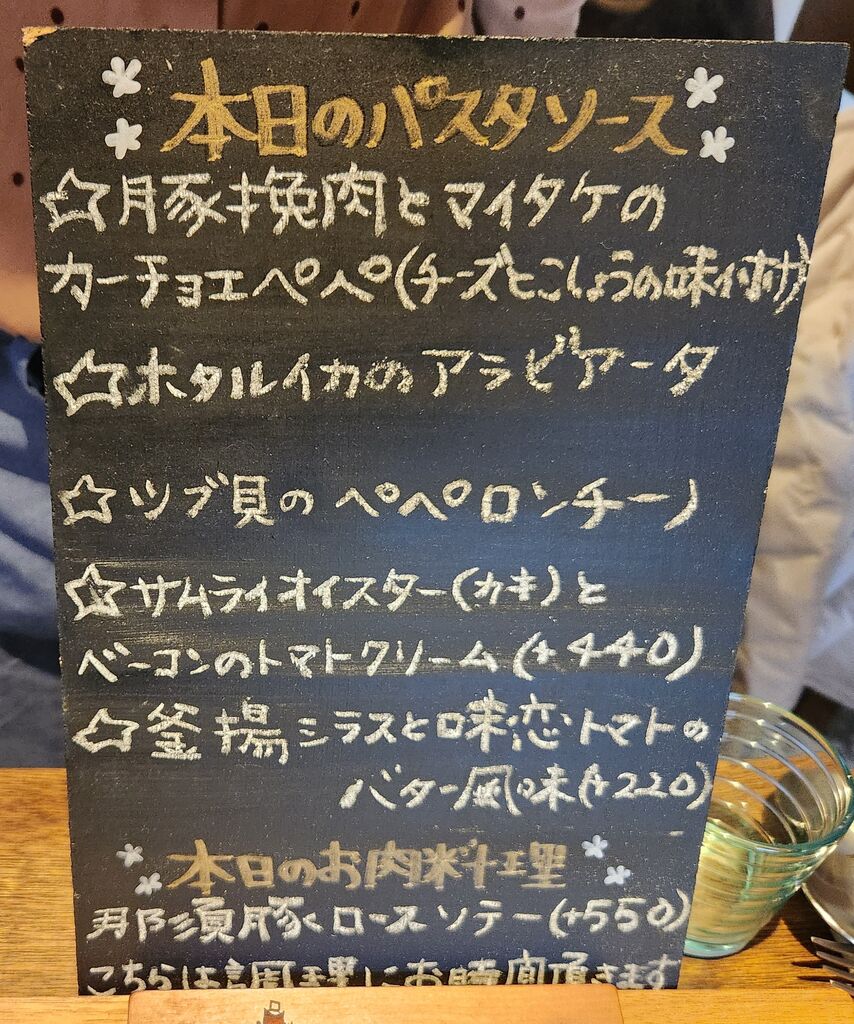 本日のパスタソース
☆豚挽肉とマイタケの
カーチョエペペ(チーズとこしょうの味付け)
☆ホタルイカのアラビアータ
☆ツブ貝のペペロンチーノ
☆サムライオイスター(カキ)と
ベーコンのトマトクリーム(+440)
☆釜揚シラスと味恋トマトの
バター風味(+220)
本日のお肉料理
那須豚ロースソテー(+550)
こちらは調理にお時間頂きます